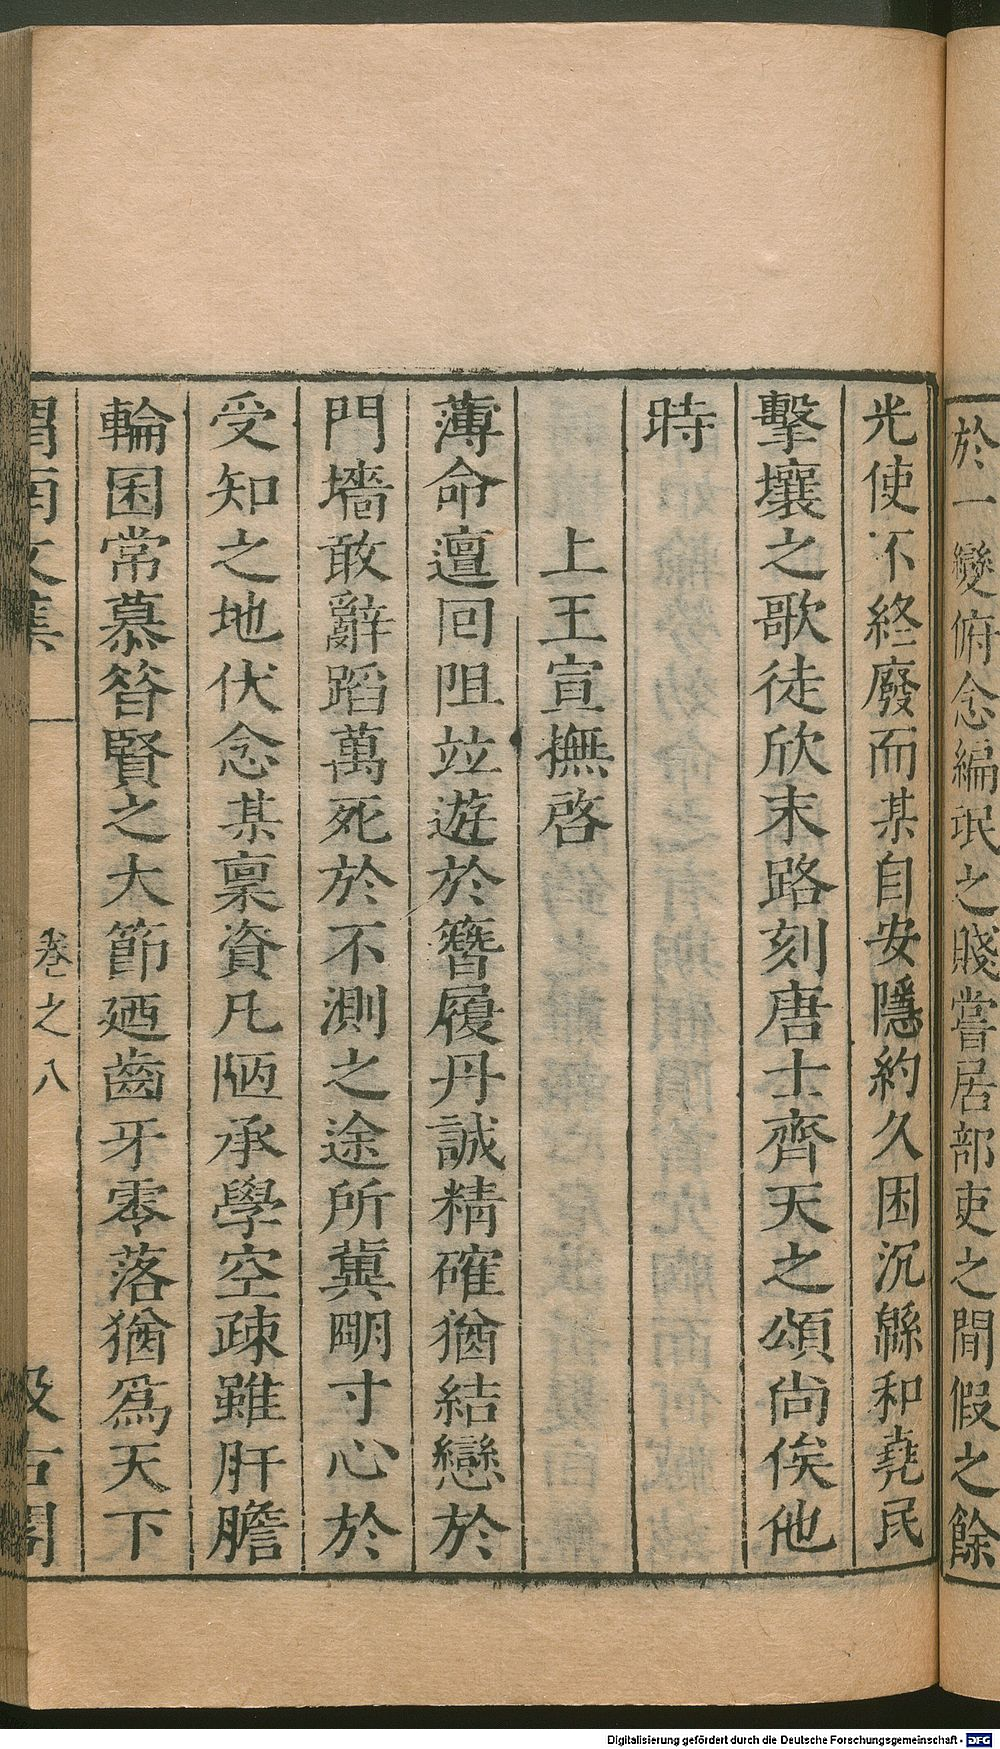 於一變俯念編氓之賤嘗居部吏之間假之餘
光使不終廢而某自安隱約久困沉緜和堯民
擊壤之歌徒欣末路刻唐士齊天之頌尚俟他
時
上王宣撫啓
薄命邅回阻竝遊於簪履丹誠精確猶結戀於
門墻敢辭蹈萬死於不測之途所冀明寸心於
受知之地伏念某稟資凡陋承學空疎雖肝膽
輪囷常慕昝賢之大節廼齒牙零落猶爲天下
渭南文集
卷之八
汲古閣
Digitalisierung gefördert durch die Deutsche Forschungsgemeinschaft - DFG